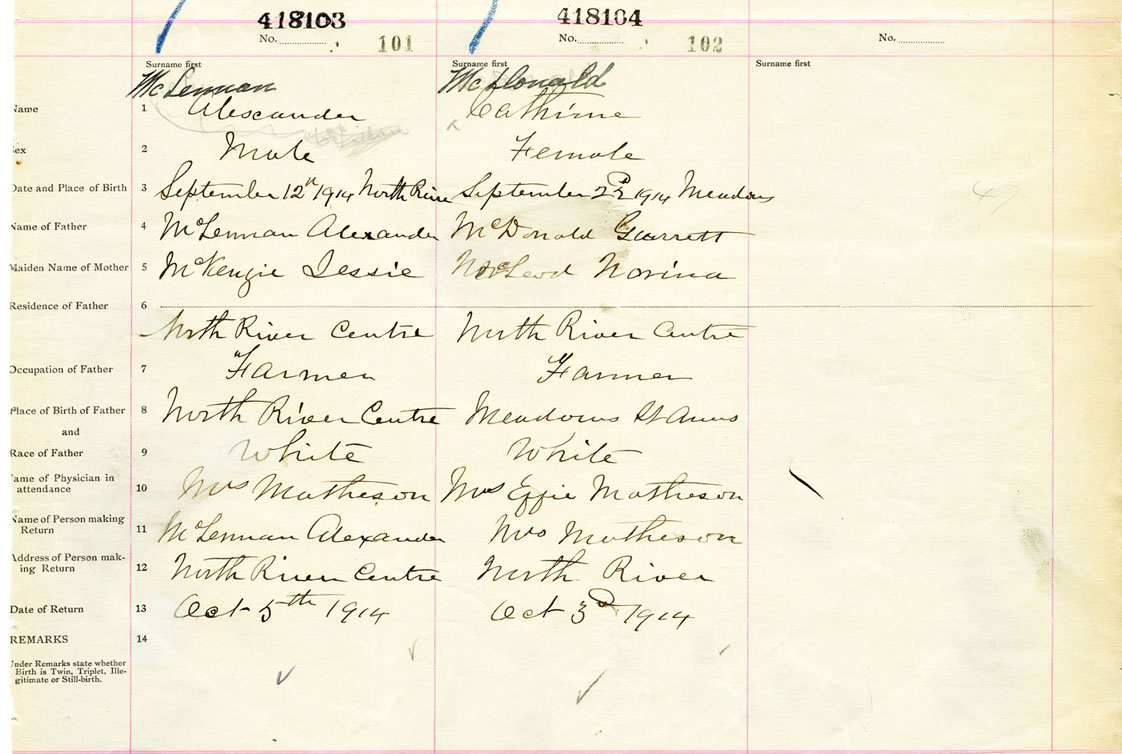 418103 418104
No. 101 No. 102 No.
Surname first Surname first Surname first
McLennan McDonald
Name 1 Alexander Catherine
Sex 2 Male Female
Date and Place of Birth 3 September 12th 1914 North River September 1914 Meadows 47
Name of Father 4 McLennan Alexander McDonald Garrett
Maiden Name of Mother 5 McKenzie Jessie McLeod Norina
Residence of Father 6
North River Centre North River Centre
Occupation of Father 7 Farmer Farmer
Place of Birth of Father 8 North River Centre Meadows St Anns
and
Race of Father 9 White White
Name of Physician in
attendance 10 Mrs Matheson Mrs Effie Matheson
Name of Person making
Return 11 McLennan Alexander Mrs Matheson
Address of Person mak-
ing Return 12 North River Centre North River
Date of Return 13 Oct 5th 1914 Oct 3d 1914
REMARKS 14
Under Remarks state whether
Birth is Twin, Triplet, Ille-
gitimate or Still-birth.